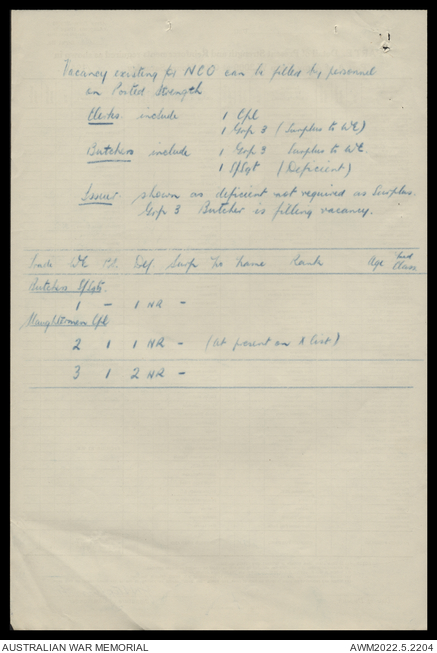 Vacancy existing for NCO can be filled by personnel
on Posted Strength
Clerks include 1 Cpl
1 Grp 3 (Surplus to WE)
Butchers include 1 Grp 3 Surplus to WE
1 S/Sgt (Deficient)
Issuer shown as deficient not required as Surplus
Grp 3 Butcher is filling vacancy.
Trade WE Def Surp No Name Rank Age Med Class
Butchers S/Sgts.
1 - 1 NR -
Slaughterman Cpl
2 1 1 NR - (at present on X list)
3 1 2 NR -
AUSTRALIAN WAR MEMORIAL
AWM2022.5.2204